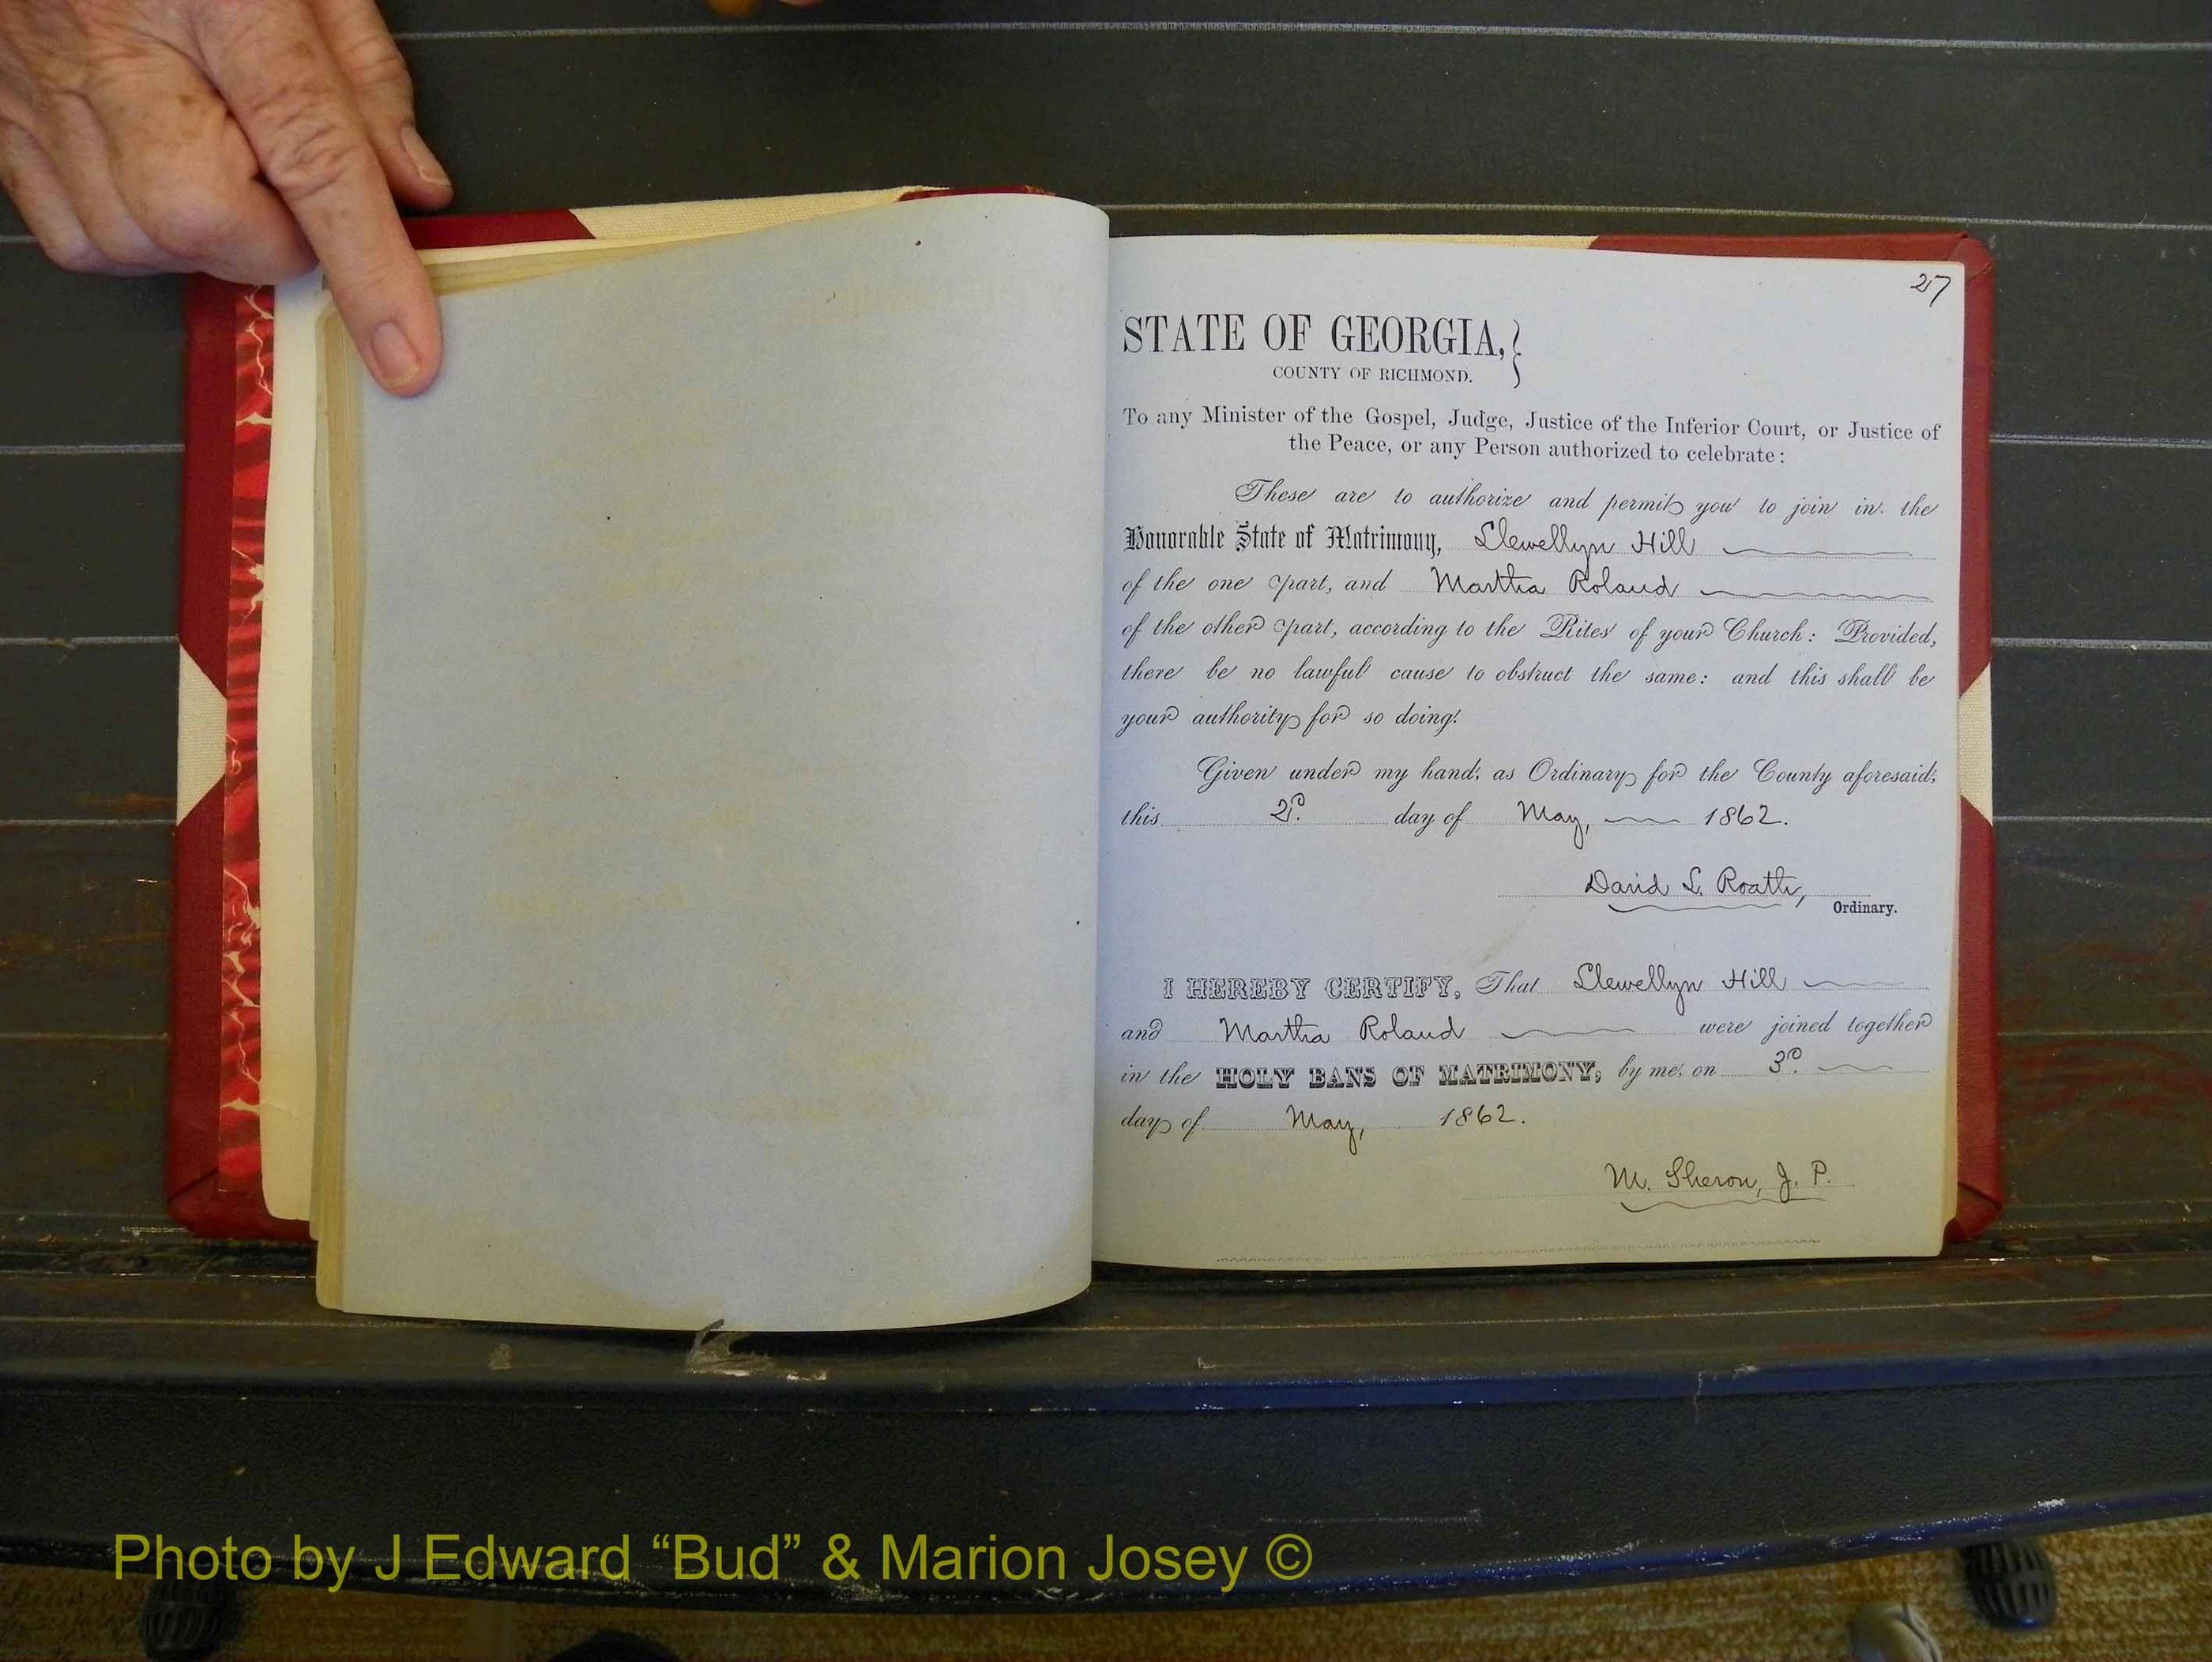 27
STATE OF GEORGIA,
COUNTY OF RICHMOND.
To any Minister of the Gospel, Judge, Justice of the Inferior Court, or Justice of
the Peace, or any Person authorized to celebrate:
These are to authorize and permit you to join in the
Honorable State of Matrimony, Llewellyn Hill
of the one part, and Martha Roland
of the other part, according to the Rites of your Church: Provided,
there be no lawful cause to obstruct the same: and this shall be
your authority for so doing.
Given under my hand, as Ordinary for the County aforesaid,
this 2d. day of May, 1862.
David L. Roath,
Ordinary.
I HEREBY CERTIFY, That Llewellyn Hill
and Martha Roland were joined together
in the HOLY BANS OF MATRIMONY, by me, on 3d.
day of May, 1862.
M. Sheron, J. P.
Photo by J Edward “Bud” & Marion Josey ©